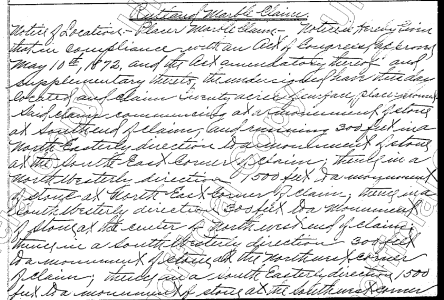 Rutland Marble Claim
Notice of Location - Placer Marble Claim - Notice is hereby Given
that in compliance with an Act of Congress approved
May 10th, 1872, and the Act amendatory thereof and
supplementary thereto, the undersigned have this day
located and claim twenty acres surface, placer ground
Said claim commencing at a monument of stone
at South end of claim; and running 300 feet in a
North Easterly direction to a monument of stone
at the South East Corner of claim; thence in a
North Westerly direction 1500 feet to a monument
of stone at North East Corner of claim; thence in a
South Westerly direction 300 feet to a monument
of stone at the center of North west end of claim;
thence in a South Westerly direction 300 feet
to a monument of stone at the Northwest corner
of claim; thence in a South Easterly direction 1500
feet to a monument of stone at the Southwest corner